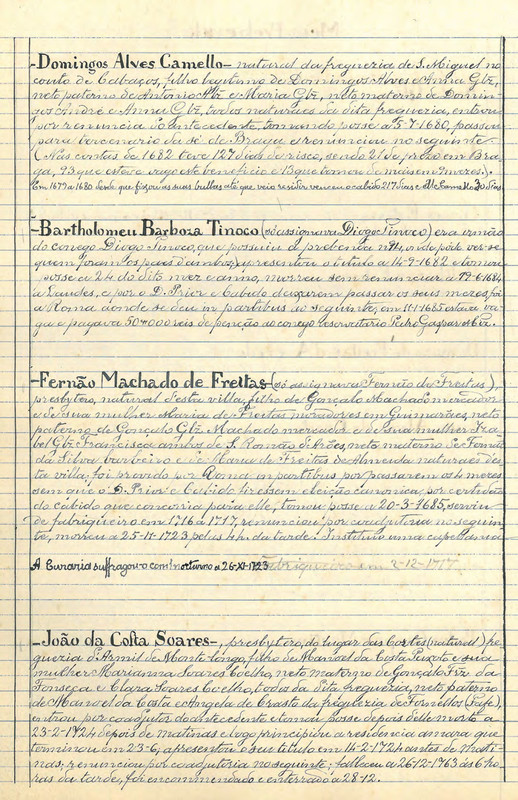 -Domingos Alves Camello- natural da freguezia de S. Miguel no
couto de Cabaços, filho legitimo de Domingos Alves e Anna Glz,
neto paterno de Antonio Alz e Maria Glz, neto materno de Domin-
gos André e Anna Glz, todos naturaes da dita freguezia, entrou
por renuncia do antecedente, tomando posse a 5-7-1680, passou
para tercenario da sé de Braga e renunciou no seguinte
(Nas contas de 1682 teve 127 dias de risco, sendo 21 de prezo em Bra-
ga, 93 que esteve vago este beneficio e 13 que tomou de mais em 9 mezes.)
Em 1679 a 1680 desde que fixou as suas bullas até que veio residir venceu o cabido 217 dias e Alz Camello 30 dias.
-Bartholomeu Barboza Tinoco (só assignava Diogo Tinoco) era irmão
do conego Diogo Tinoco, que possuiu a prebenda nº 4, onde póde ver-se
quem foram os paes d'ambos, apresentou o titulo a 14-9-1682 e tomou
posse a 24 do dito mez e anno, morreu sem renunciar a 19-6-1684
a Laudes, e por o D. Prior e Cabido deixarem passar os seus mezes, foi
a Roma donde se deu in partibus ao seguinte, em 11-1-1685 estava va-
ga e pagava 50#000 reis de penção ao conego reservatario Pedro Gaspar
-Fernão Machado de Freitas- (só assignava Fernão de Freitas),
presbytero, natural d'esta villa, filho de Gonçalo Machado mercador
e de sua mulher Maria de Freitas moradores em Guimarães, neto
paterno de Gonçalo Glz Machado mercador e de sua mulher Iza-
bel Glz Francisca ambos de S. Romão de Arões, neto materno de Fernão
da Silva barbeiro e de Maria de Freitas de Almeida naturaes des-
ta villa, foi provido por Roma in partibus por passarem os 4 mezes
sem que o D. Prior e Cabido fizessem eleição canonica, por certidão
do cabido que concorria para elle, tomou posse a 20-3-1685, serviu
de fabriqueiro em 1716 a 1717, renunciou por coadjutoria no seguin-
te, morreu a 25-11-1723 pelas 4h. da tarde. Instituiu uma capellania
A Curaria suffragou-o com 1 nocturno a 26-XI-1723 fabriqueiro em 2-12-1717
-João da Costa Soares-, presbytero, do lugar das Cortes (natural) fre-
guezia d'Armil de Monte longo, filho de Manoel da Costa Peixoto e sua
mulher Marianna Soares Coelho, neto materno de Gonçalo Frz da
Fonseca e Clara Soares Coelho, todos da dita freguezia, neto paterno
de Manoel da Costa e Angela de Crasto da freguezia de Fornellos (Fafe),
entrou por coadjutor do antecedente e tomou posse depois d'elle morto a
23-2-1724 depois de matinas e logo principiou a residencia amara que
terminou em 23-6, apresentou o seu titulo em 14-2-1724 antes de mati-
nas; renunciou por coadjutoria no seguinte; falleceu a 26-12-1763 ás 6 ho-
ras da tarde, foi encommendado e enterrado a 28-12.